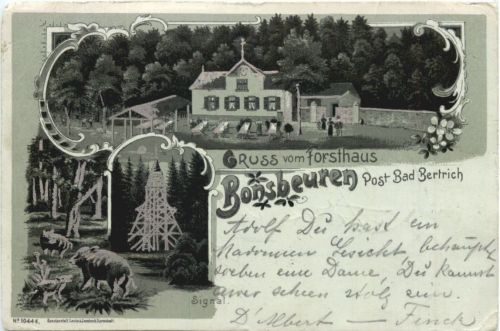 Gruss vom Forsthaus
Bonsbeuren Post Bad Bertrich
Adolf Du hast ein
Madonnen Gesicht, behaupt
soeben eine Dame, Du kannst
aber schon stolz sein.
D'Albert – Finck
Signal.
No 10444.